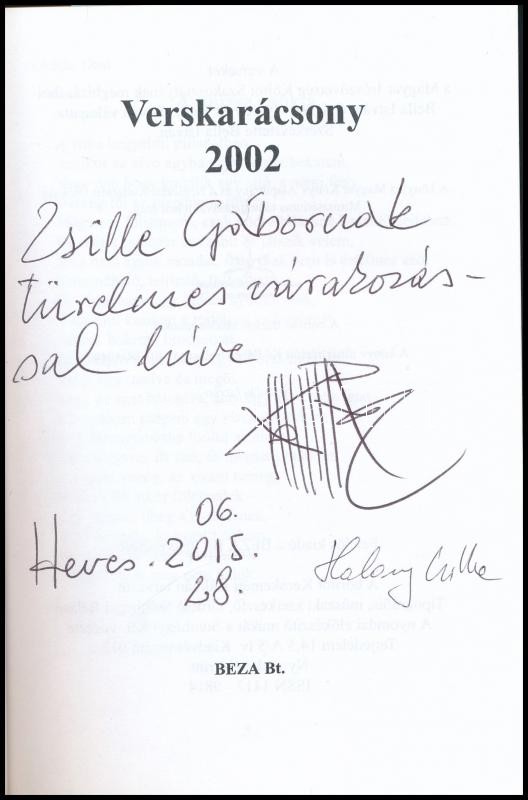 Verskarácsony
2002
Zsille Gábornak
türelmes várakozás-
sal híve
06.
Heves. 2015.
28.
BEZA Bt.